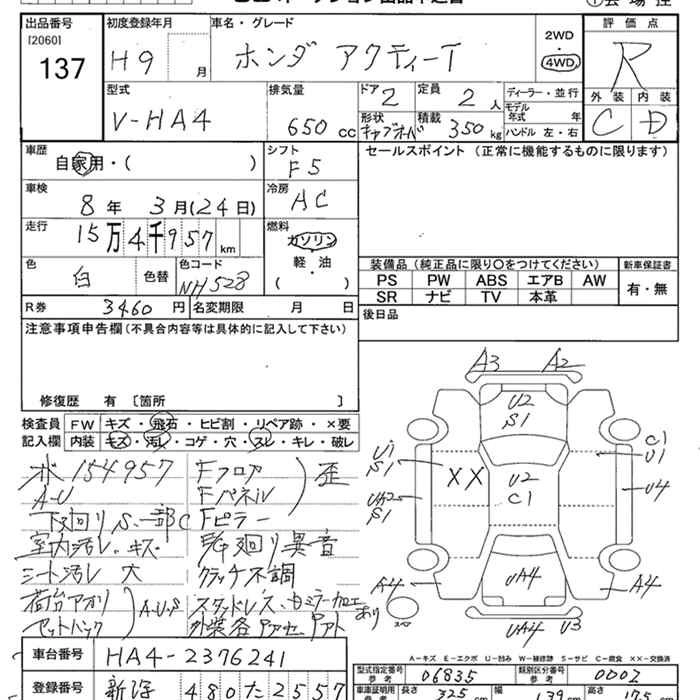 出品番号 [2060] 137
初度登録年月 H9 月
車名・グレード ホンダ アクティーT
2WD
4WD
評価点 R
外装 内装
C D
型式 V-HA4
排気量 650cc
ドア 2
定員 2人
形状 キャブオーバ
積載 350kg
ディーラー・並行
モデル年式 年
ハンドル 左・右
車歴 自家用・( )
シフト F5
車検 8年 3月(24日)
冷房 AC
走行 15万4千957km
燃料 ガソリン
軽・油
( )
色 白 色替
色コード NH528
R券 3460円
名変期限 月 日
セールスポイント (正常に機能するものに限ります)
装備品 (純正品に限り○をつけてください)
新車保証書
PS PW ABS エアB AW
SR ナビ TV 本革
有・無
後日品
注意事項申告欄(不具合内容等は具体的に記入して下さい)
修復歴 有 〔箇所 〕
検査員記入欄
FW キズ・飛石・ヒビ割・リペア跡・×要
内装 キズ・汚レ・コゲ・穴・スレ・キレ・破レ
ホ 154957
A-U
下廻りS、一部C
室内汚レ、キズ
シート汚レ 穴
荷台アオリ
セットバック
A-U-S
Fフロア
Fパネル
Fピラー
歪
廻り異音
クラッチ不調
スタッドレス、
加エあり
外装各
A3 A2
U2
S1
U1
S1
C1
U1
XX
U2
C1
U4
S1
A4
UA4
A4
UA4 U3
A-キズ E-エクボ U-凹み W-補修跡 S-サビ C-腐食 XX-交換済
車台番号 HA4-2376241
登録番号 480た2557
型式指定番号 参考 06835
類別区分番号 参考 0002
車庫証明用 参考 長さ 325cm 幅 139cm 高さ 175